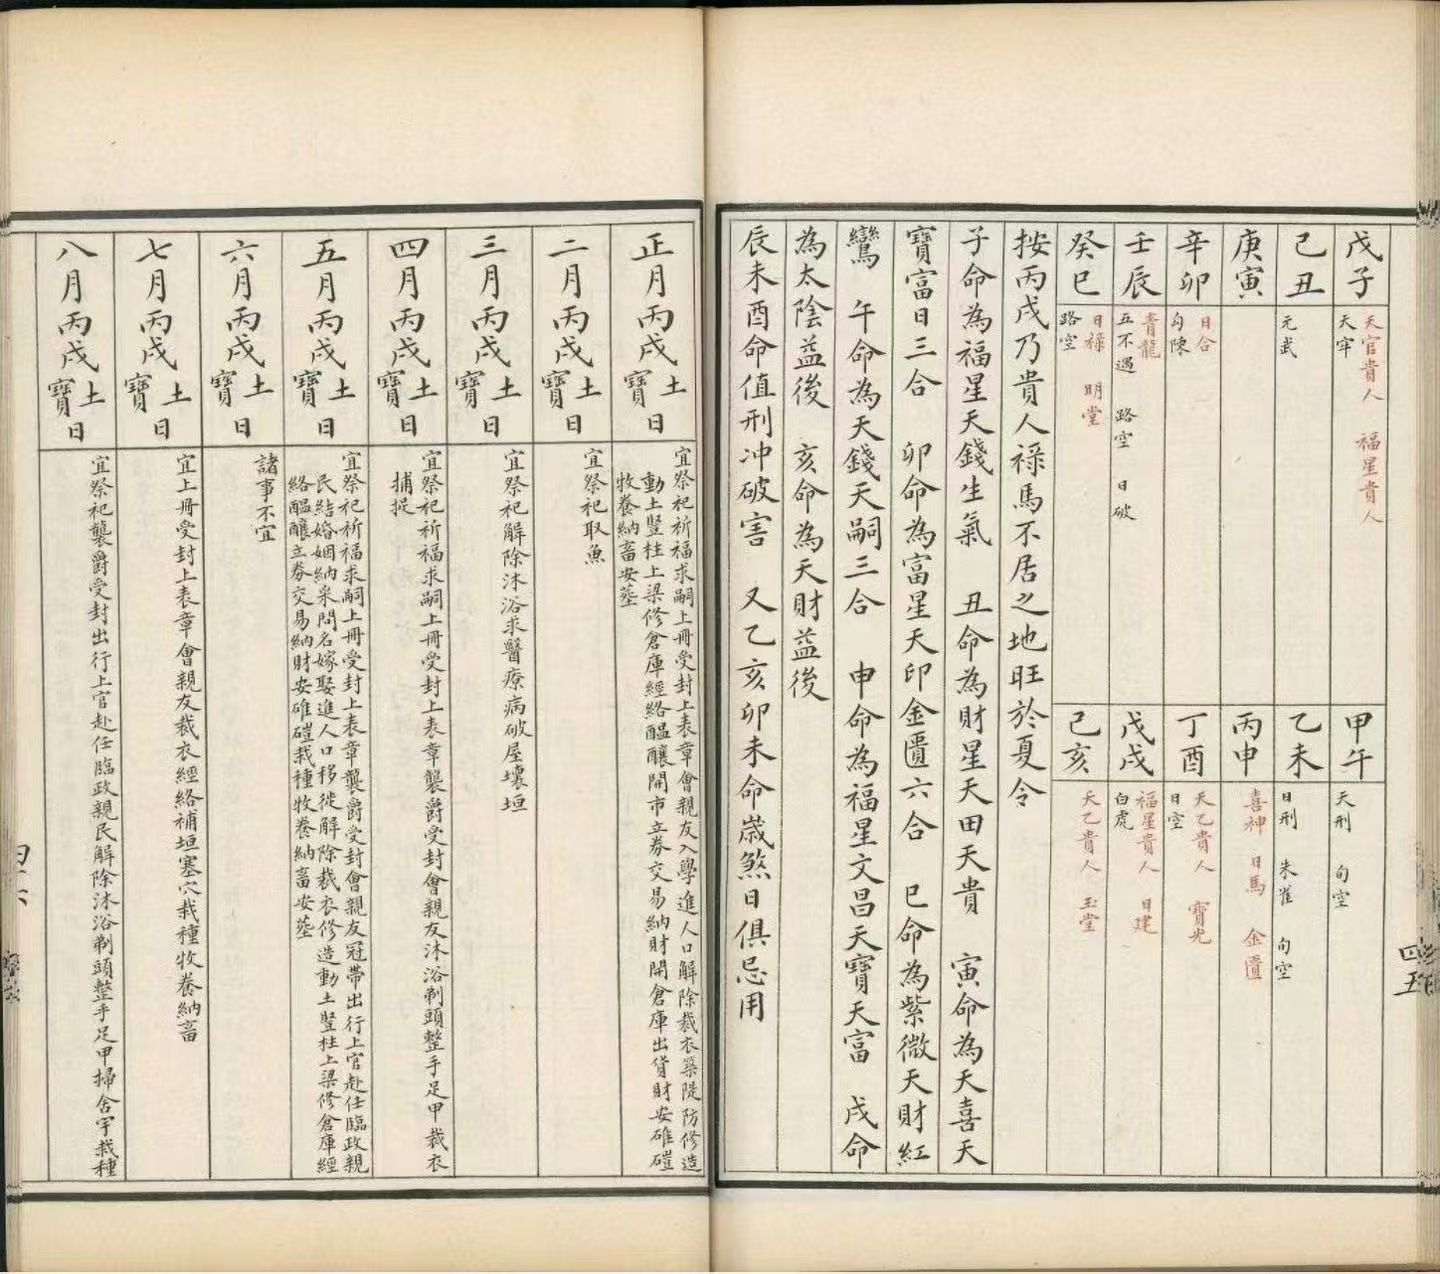 戊子 天官貴人 福星貴人
天牢
己丑 元武
庚寅
辛卯 日合
勾陳
壬辰 青龍
五不遇 路空 日破
癸巳 日祿 明堂
路空
甲午 天刑 旬空
乙未 日刑 朱雀 旬空
丙申 喜神 日馬 金匱
丁酉 天乙貴人 寶光
日空
戊戌 福星貴人 日建
白虎
己亥 天乙貴人 玉堂
按丙戌乃貴人祿馬不居之地旺於夏令
子命為福星天錢生氣 丑命為財星天田天貴 寅命為天喜天
寶富日三合 卯命為富星天印金匱六合 巳命為紫微天財紅
鸞 午命為天錢天嗣三合 申命為福星文昌天寶天富 戌命
為太陰益後 亥命為天財益後
辰未酉命值刑冲破害 又乙亥卯未命歲煞日俱忌用
四五
正月丙戌土寶日
宜祭祀祈福求嗣上冊受封上表章會親友入學進人口解除裁衣築隄防修造
動土豎柱上梁修倉庫經絡醞釀開市立券交易納財開倉庫出貨財安碓磑
牧養納畜安葬
二月丙戌土寶日
宜祭祀取魚
三月丙戌土寶日
宜祭祀解除沐浴求醫療病破屋壞垣
四月丙戌土寶日
宜祭祀祈福求嗣上冊受封上表章襲爵受封會親友沐浴剃頭整手足甲裁衣
捕捉
五月丙戌土寶日
宜祭祀祈福求嗣上冊受封上表章襲爵受封會親友冠帶出行上官赴任臨政親
民結婚姻納采問名嫁娶進人口移徙解除裁衣修造動土豎柱上梁修倉庫經
絡醞釀立券交易納財安碓磑栽種牧養納畜安葬
六月丙戌土寶日
諸事不宜
七月丙戌土寶日
宜上冊受封上表章會親友裁衣經絡補垣塞穴栽種牧養納畜
八月丙戌土寶日
宜祭祀襲爵受封出行上官赴任臨政親民解除沐浴剃頭整手足甲掃舍宇栽種